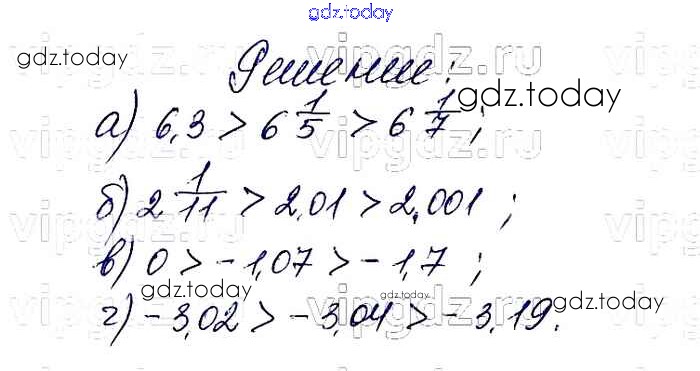 gdz.today
gdz.today vipgdz.ru
Решение:
gdz.today
а) 6,3 > 6 1/5 > 6 1/7 ;
vipgdz.ru
б) 2 1/11 > 2,01 > 2,001 ;
vipgdz.ru
в) 0 > -1,07 > -1,7 ;
gdz.today gdz.today gdz.today
г) -3,02 > -3,04 > -3,19.
vipgdz.ru